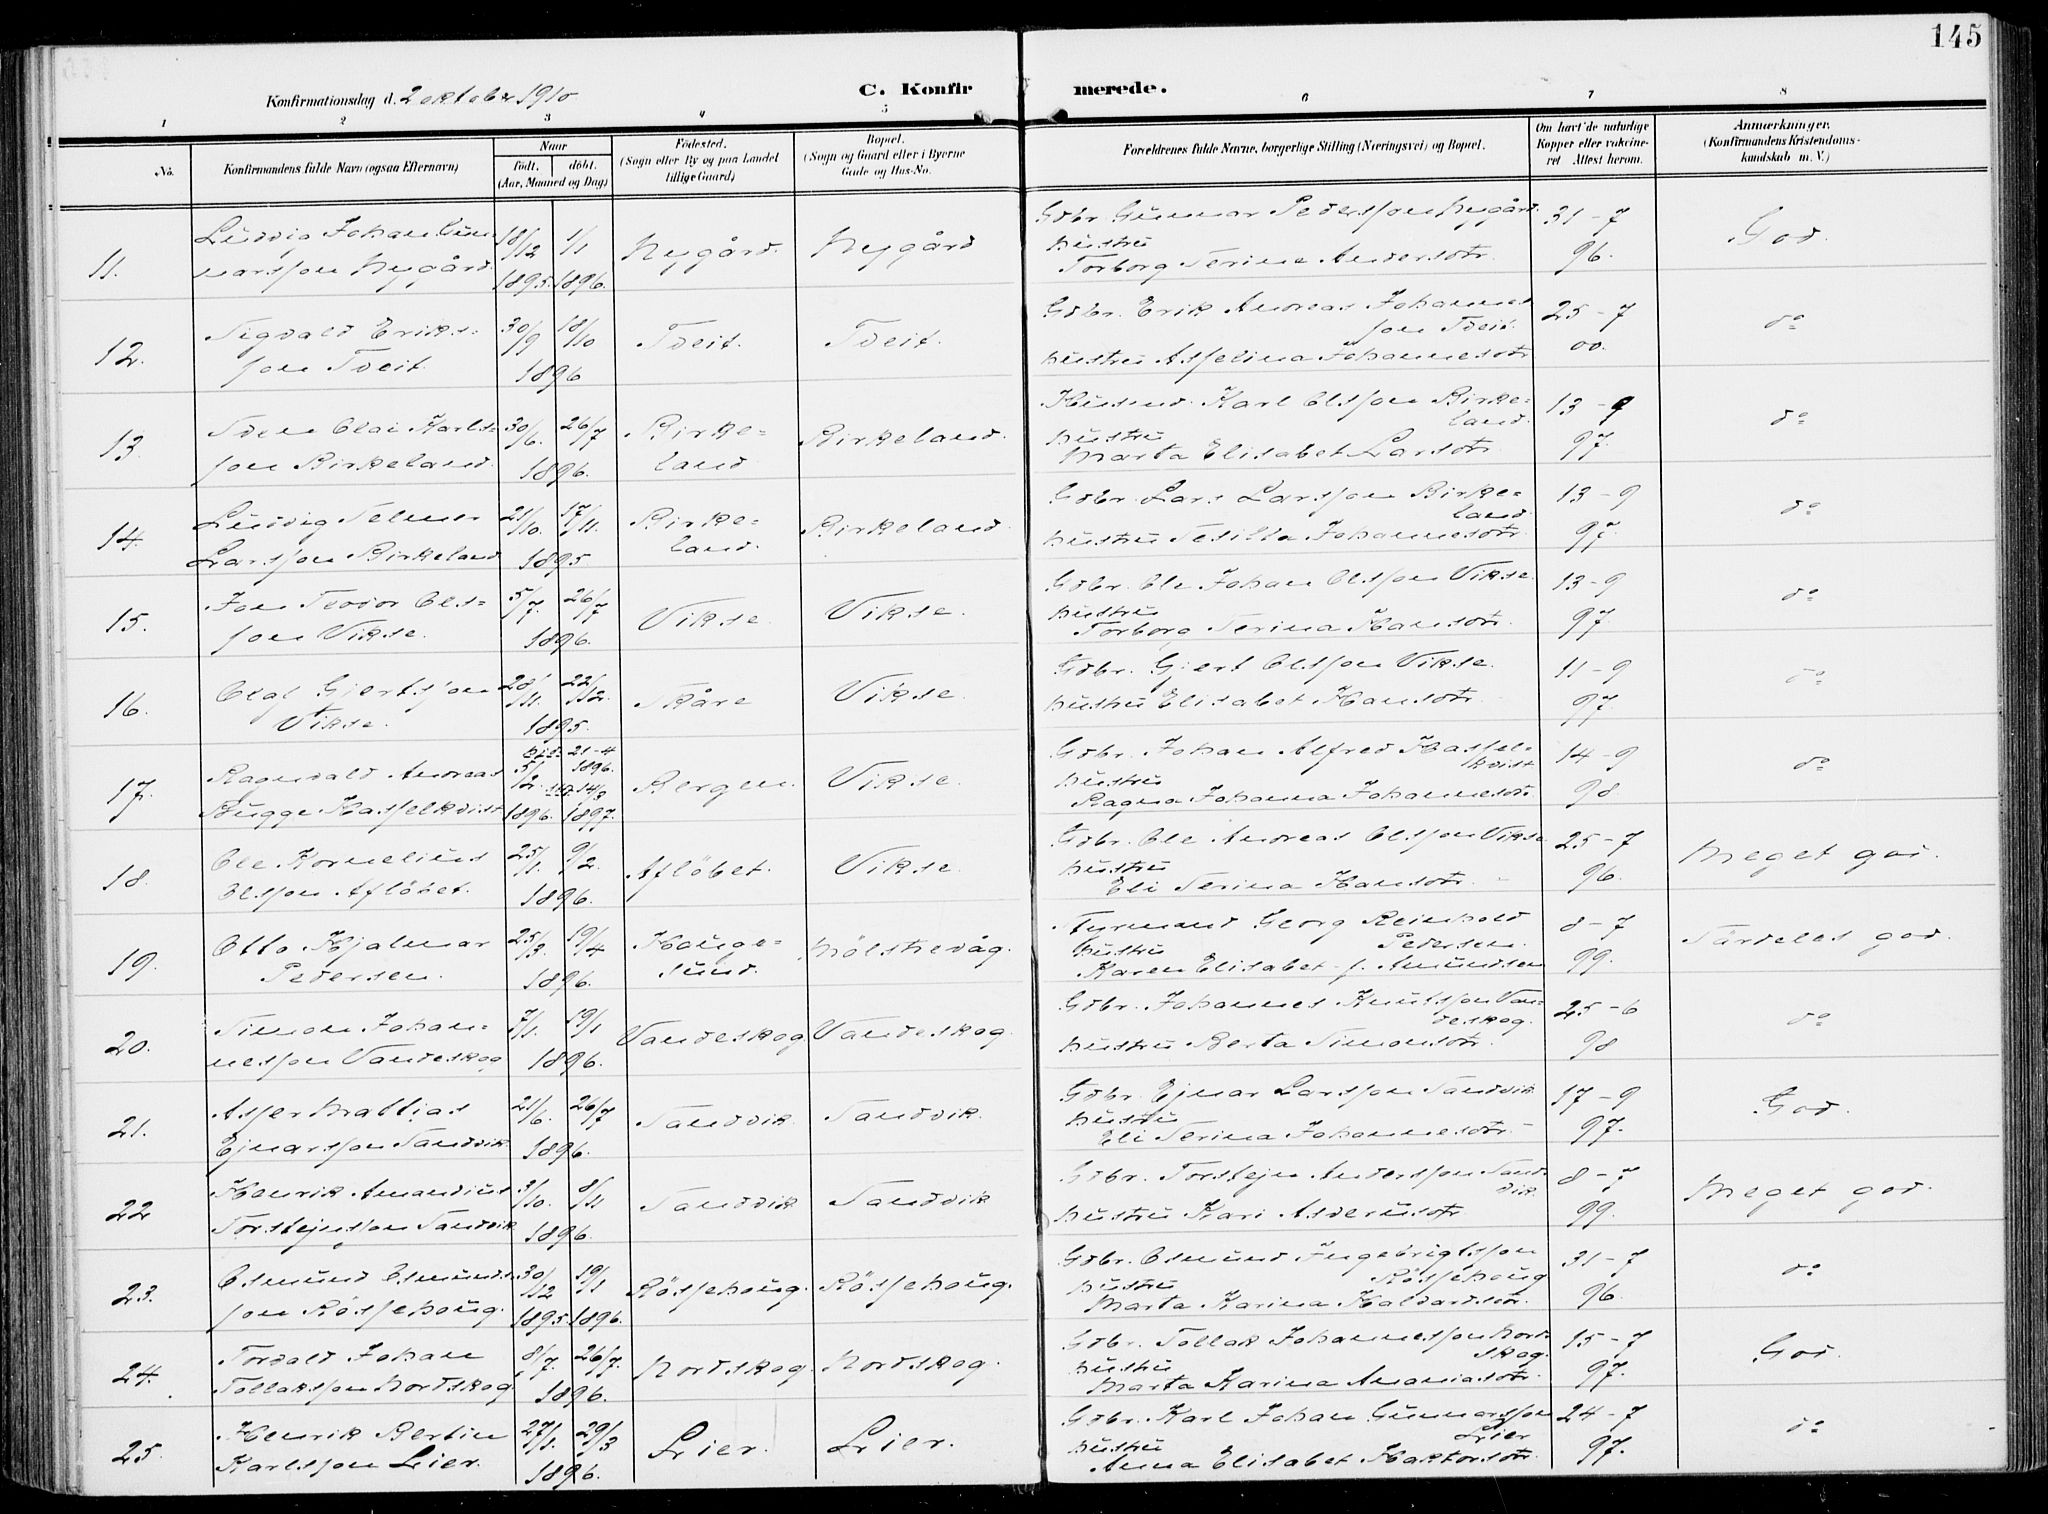 145
Konfirmationsdag d. 2 oktober 1910
C. Konfirmerede.
1 2 3 4 5 6 7 8
No.
Konfirmandens fulde Navn (ogsaa Efternavn)
Naar
födt. döbt.
(Aar, Maaned og Dag)
Födested.
(Sogn eller By og paa Landet
tillige Gaard)
Bopæl.
(Sogn og Gaard eller i Byerne
Gade og Hus-No.
Forældrenes fulde Navne, borgerlige Stilling (Næringsvei) og Bopæl.
Om havt de naturlige
Kopper eller vakcineret
Attest herom.
Anmærkninger.
(Konfirmandens Kristendomskundskab
m. V.)
11. Ludvig Johan Gunnarsson Nygård. 18/12 1895. 1/1 1896. Nygård. Nygård
Gdbr. Gunnar Pedersson Nygård.
hustru
Torborg Serina Andersdtr. 31-7 96. God.
12. Sigvald Eriksson Tveit. 30/9 18/10 1896 Tveit. Tveit.
Gdbr. Erik Andreas Johannesson Tveit.
hustru Asselina Johannesdtr. 25-7 00. do
13. Sven Olai Karlsson Birkeland. 30/6. 26/7 1896. Birkeland Birkeland.
Husmd. Karl Olsson Birkeland.
hustru
Marta Elisabet Larsdtr. 13-9 97. do
14. Ludvig Selmer Larsson Birkeland 21/10. 17/11. 1895 Birkeland. Birkeland.
Gdbr. Lars Larsson Birkeland
hustru Sesilla Johannesdtr. 13-9 97. do
15. Jon Teodor Olsson Vikse. 5/7. 26/7 1896. Vikse. Vikse.
Gdbr. Ole Johan Olsson Vikse.
hustru
Torborg Serina Hansdtr. 13-9 97 do
16. Olaf Gjertsson Vikse. 28/11. 22/12. 1895. Skåre Vikse.
Gdbr. Gjert Olsson Vikse.
hustru Elisabet Hansdtr. 11-9 97. do
17. Ragnvald Andreas Bugge Hasselkvist 5/2. 1896. 21-4 1896. 14/3 1897. Bergen. Vikse.
Gdbr. Johan Alfred Hasselkvist
hustru
Ragna Johanna Johannesdtr. 14-9 98 do
18. Ole Kornelius Olsson Afløbet. 25/1. 9/2. 1896. Afløbet. Vikse.
Gdbr. Ole Andreas Olsson Vikse
hustru
Eli Serina Hansdtr. 25-7 96. Meget god.
19. Otto Hjalmar Pedersen. 25/3. 19/4 1896. Haugesund. Mølstrevåg.
Fyrmand Georg Reinhold Pedersen.
hustru
Karen Elisabet f. Amundsen 8-7 99. Særdeles god.
20. Simon Johannesson Vandeskog 7/1. 19/1 1896. Vandeskog Vandeskog.
Gdbr. Johannes Knutsson Vandeskog.
hustru Berta Simonsdtr. 25-6 98 do
21. Asser Mattias Ejnarsson Sandvik. 21/6. 26/7 1896. Sandvik. Sandvik.
Gdbr. Ejnar Larsson Sandvik
hustru
Eli Serina Johannesdtr. 17-9 97. God.
22 Henrik Amandius Torstejnsson Sandvik. 3/10. 8/11 1896. Sandvik Sandvik
Gdbr. Torstejn Andersson Sandvik.
hustru Kari Asderusdtr. 8-7 99. Meget god.
23. Osmund Osmundsson Røssehaug. 30/12 1895. 19/1 1896. Røssehaug. Røssehaug.
Gdbr. Osmund Ingebrigtsson Røssehaug
hustru
Marta Karina Haldardsdtr. 31-7 96. do
24. Torvald Johan Tollaksson Nordskog. 8/7. 26/7. 1896. Nordskog. Nordskog.
Gdbr. Tollak Johannesson Nordskog.
hustru
Marta Karina Ananiasdtr. 15-7 97. God.
25. Henrik Bertin Karlsson Lier. 27/1. 29/3 1896. Lier. Lier.
Gdbr. Karl Johan Gunnarsson Lier
hustru
Anna Elisabet Haktorsdtr. 24-7 97. do